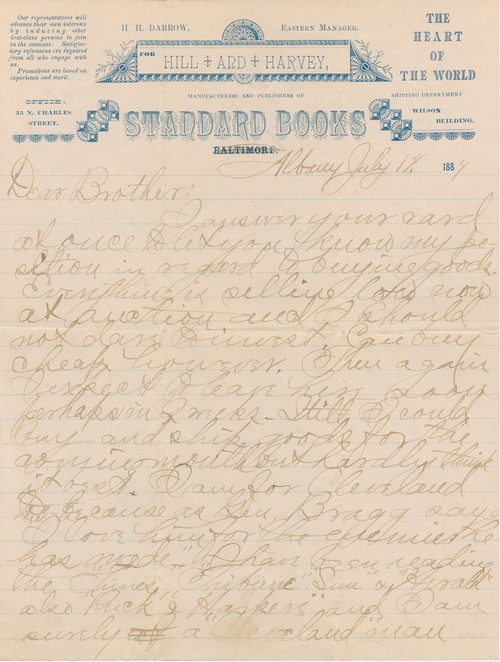 Our representatives will
advance their own interests
by inducing other
first-class persons to join
in the canvass. Satisfac-
tory references are required
from all who engage with
us.
Promotions are based on
experience and merit.
H. H. DARROW, EASTERN MANAGER.
FOR
HILL AND HARVEY,
MANUFACTURERS AND PUBLISHERS OF
STANDARD BOOKS
BALTIMORE.
THE
HEART
OF
THE WORLD
OFFICE:
55 N. CHARLES
STREET.
SHIPPING DEPARTMENT
WILSON
BUILDING.
Albany July 18 1884
Dear Brother:
I answer your card
at once to let you know my po-
sition in regard to buying goods
Everything is selling low now
at auction and I should
not dare to invest, Can buy
cheap however. Then again
I expect to leave here soon
perhaps in 2 weeks - Still I could
buy and ship goods for the
coming month but hardly think
it best. I am for Cleveland
because as Gen. Bragg says
"I love him for the enemies he
has made." I have been reading
the "Times" "Tribune" "Sun" "Herald"
also "Puck" & "Harpers" and I am
surely a "Cleveland" man